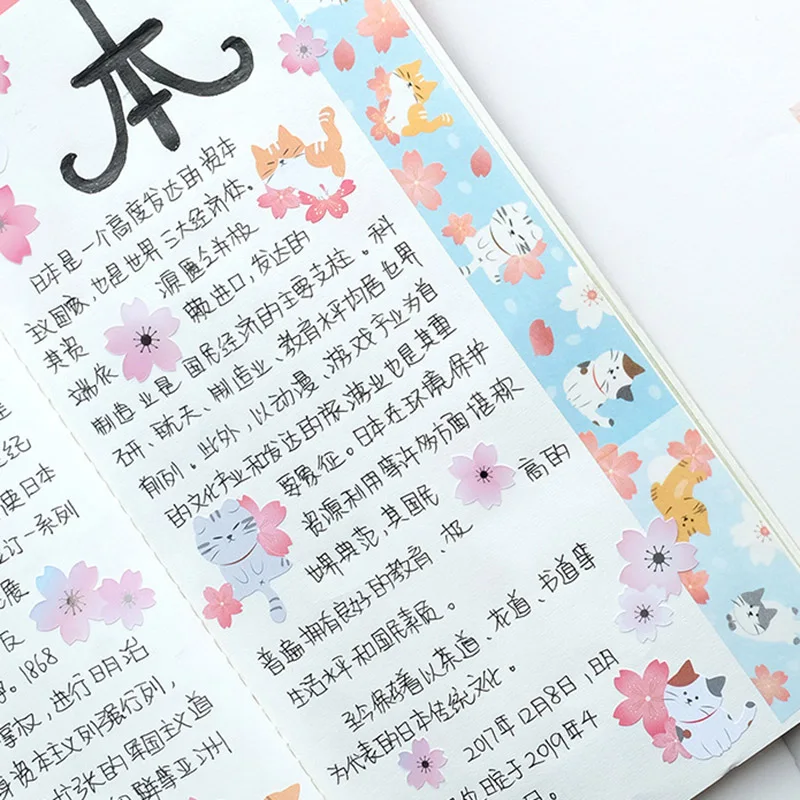 本
日本是一个高度发达的资本
主义国家,也是世界三大经济体。
其资 源匮乏并极
端依 赖进口,发达的
制造业是国民经济的主要支柱。科
研、航天、制造业、教育水平均居世界
前列。此外,以动漫、游戏产业为首
的文化产业和发达的旅游业也是其重
要象征。日本在环境保护
资源利用等许多方面堪称
世界典范,其国民
普遍拥有良好的教育、极 高的
生活水平和国民素质。
至今保存着以茶道、花道、书道等
为代表的日本传统文化。
2017年12月8日,日
于2019年4
日。
世纪
使日本
订一系列
展
反
。1868
掌权,进行明治
资本主义列强行列,
扩张的军国主义道
鲜等亚洲